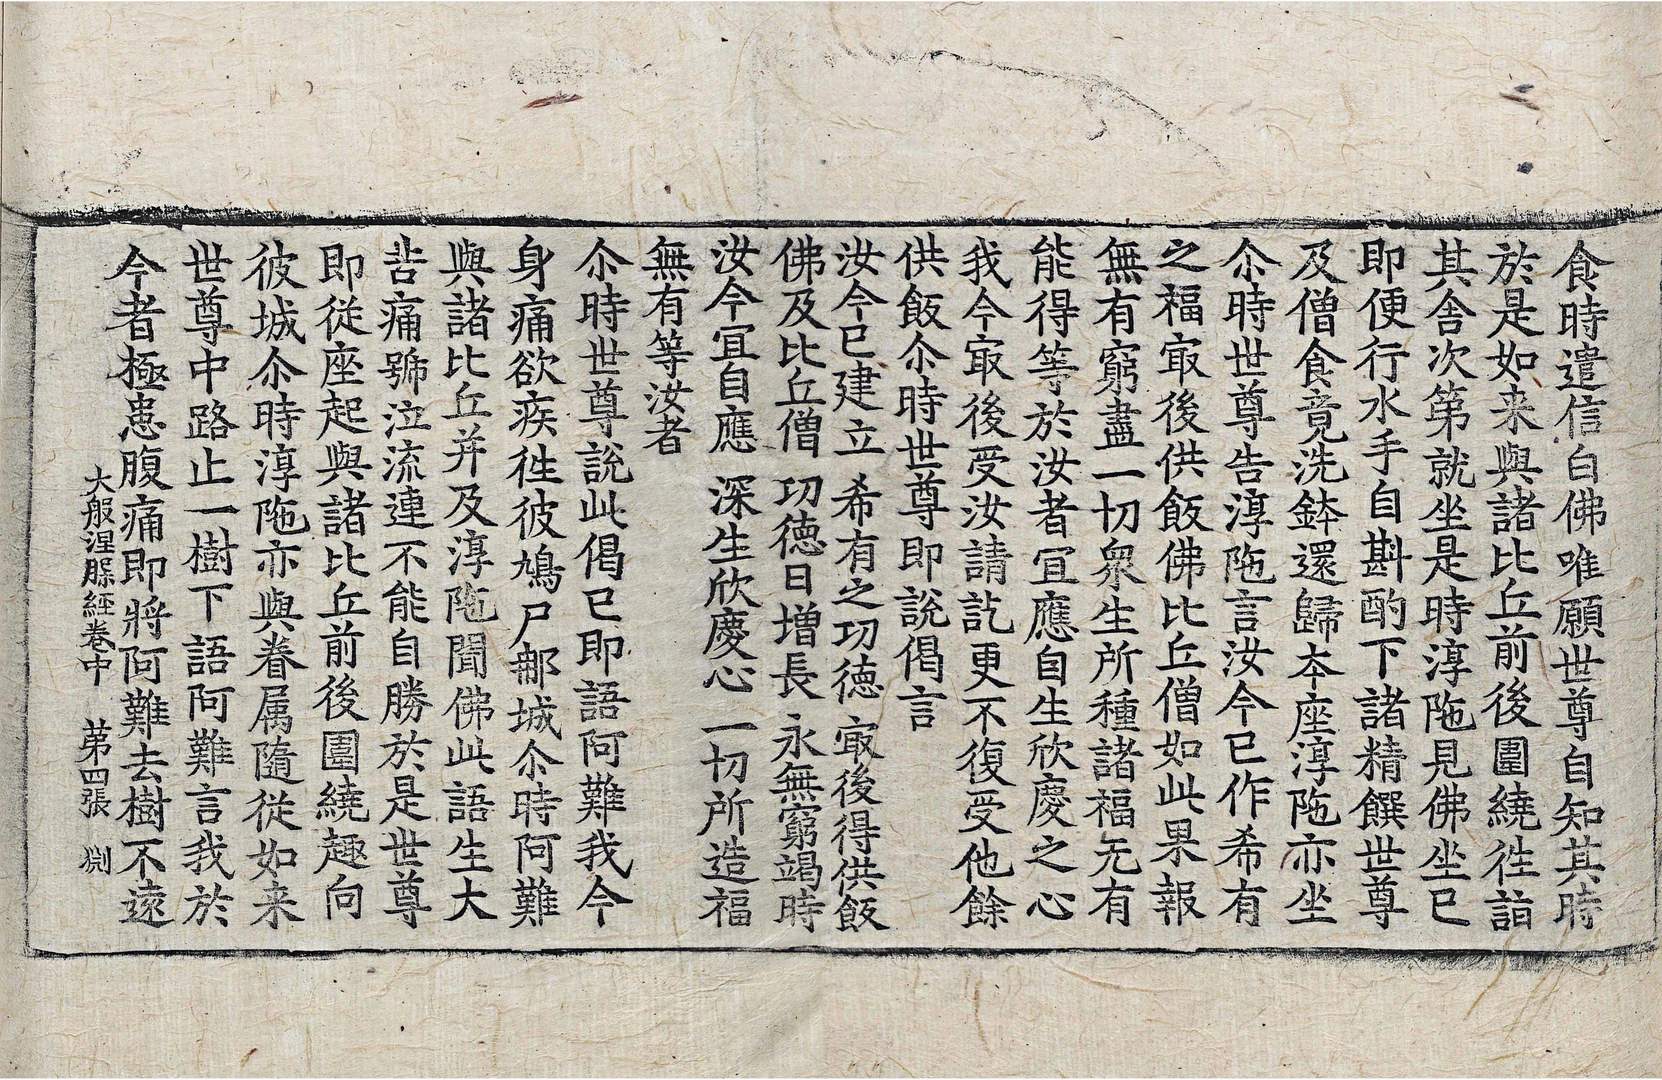 食時遣信白佛唯願世尊自知其時
於是如来與諸比丘前後圍繞徃詣
其舍次第就坐是時淳陁見佛坐已
即便行水手自斟酌下諸精饌世尊
及僧食竟洗鉢還歸夲座淳陁亦坐
尒時世尊告淳陁言汝今已作希有
之福㝡後供飯佛比丘僧如此果報
無有窮盡一切衆生所種諸福无有
能得等於汝者宜應自生欣慶之心
我今㝡後受汝請訖更不復受他餘
供飯尒時世尊即說偈言
汝今已建立 希有之功德 㝡後得供飯
佛及比丘僧 功德日增長 永無窮竭時
汝今宜自應 深生欣慶心 一切所造福
無有等汝者
尒時世尊說此偈已即語阿難我今
身痛欲疾徃彼鳩尸郍城尒時阿難
與諸比丘并及淳陁聞佛此語生大
悲痛號泣流連不能自勝於是世尊
即從座起與諸比丘前後圍繞趣向
彼城尒時淳陁亦與眷属隨從如来
世尊中路止一樹下語阿難言我於
今者極患腹痛即將阿難去樹不遠
大般涅槃經卷中 第四張